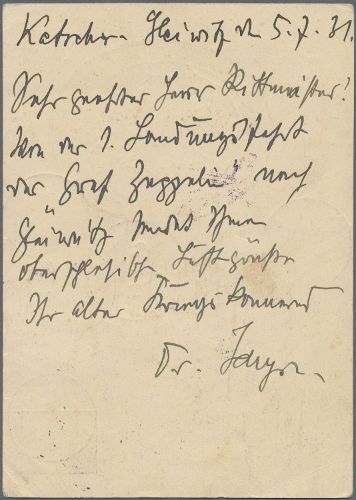 Katscher - Gleiwitz d 5. 7. 31.
Sehr geehrter Herr Rittmeister!
Von der 1. Landungsfahrt
des "Graf Zeppelin" nach
Gleiwitz sendet Ihnen
oberschlesische Luftgrüße
Ihr alter Kriegskamerad
Dr.